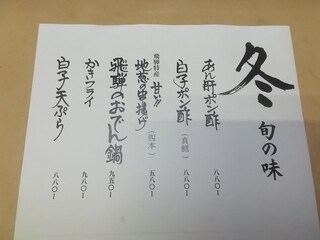 冬 旬の味
あん肝ポン酢 八八〇
白子ポン酢（真鱈） 八八〇
飛騨特産 甘い!!
地葱の串揚げ（四本） 五八〇
飛騨のおでん鍋 九五〇
かきフライ 九八〇
白子天ぷら 八八〇